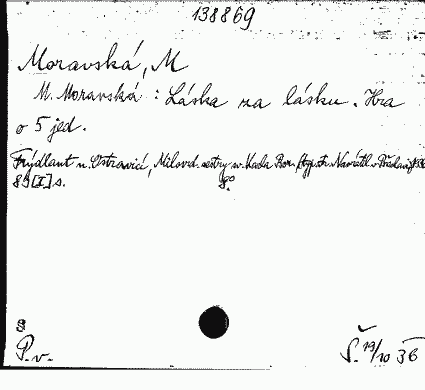 138869
Moravská, M
M. Moravská : Láska za lásku. Hra
o 5 jed.
Frýdlant n. Ostravicí, Milosrd. sestry sv. Karla Bor. (typ. Navrátil
89 [I] s. 8°
8
P. v. Š. 19/10 36